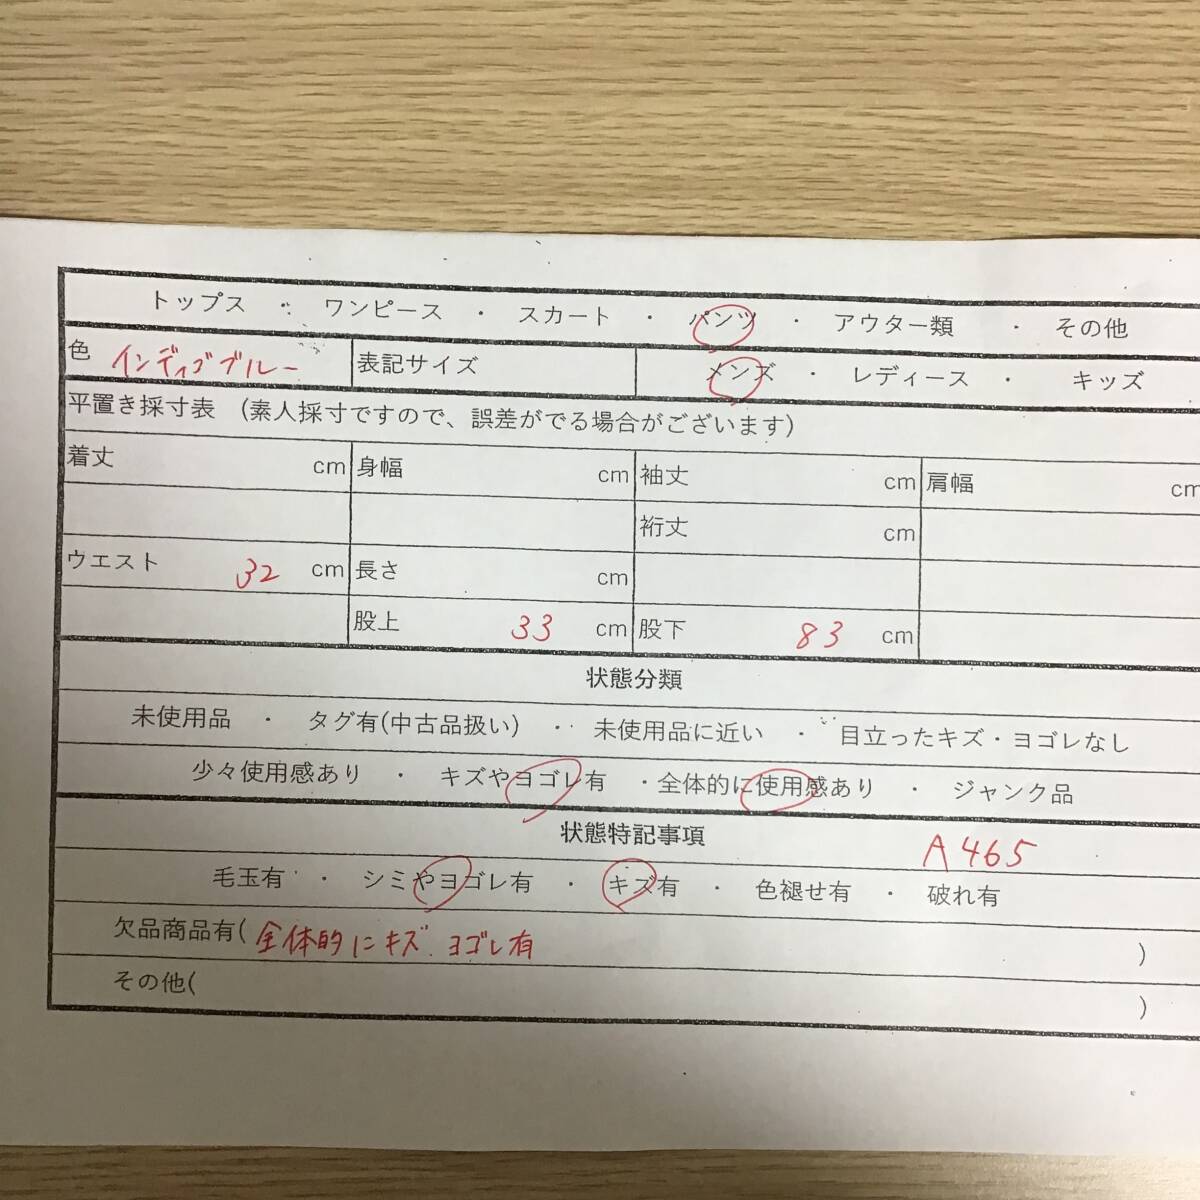 トップス ・ ワンピース ・ スカート ・ パンツ ・ アウター類 ・ その他
色 インディゴブルー 表記サイズ メンズ ・ レディース ・ キッズ
平置き採寸表 (素人採寸ですので、誤差がでる場合がございます)
着丈 cm 身幅 cm 袖丈 cm 肩幅 cm
裄丈 cm
ウエスト 32 cm 長さ cm
股上 33 cm 股下 83 cm
状態分類
未使用品 ・ タグ有(中古品扱い) ・ 未使用品に近い ・ 目立ったキズ・ヨゴレなし
少々使用感あり ・ キズやヨゴレ有 ・全体的に使用感あり ・ ジャンク品
状態特記事項 A465
毛玉有 ・ シミやヨゴレ有 ・ キズ有 ・ 色褪せ有 ・ 破れ有
欠品商品有( 全体的にキズ、ヨゴレ有 )
その他( )